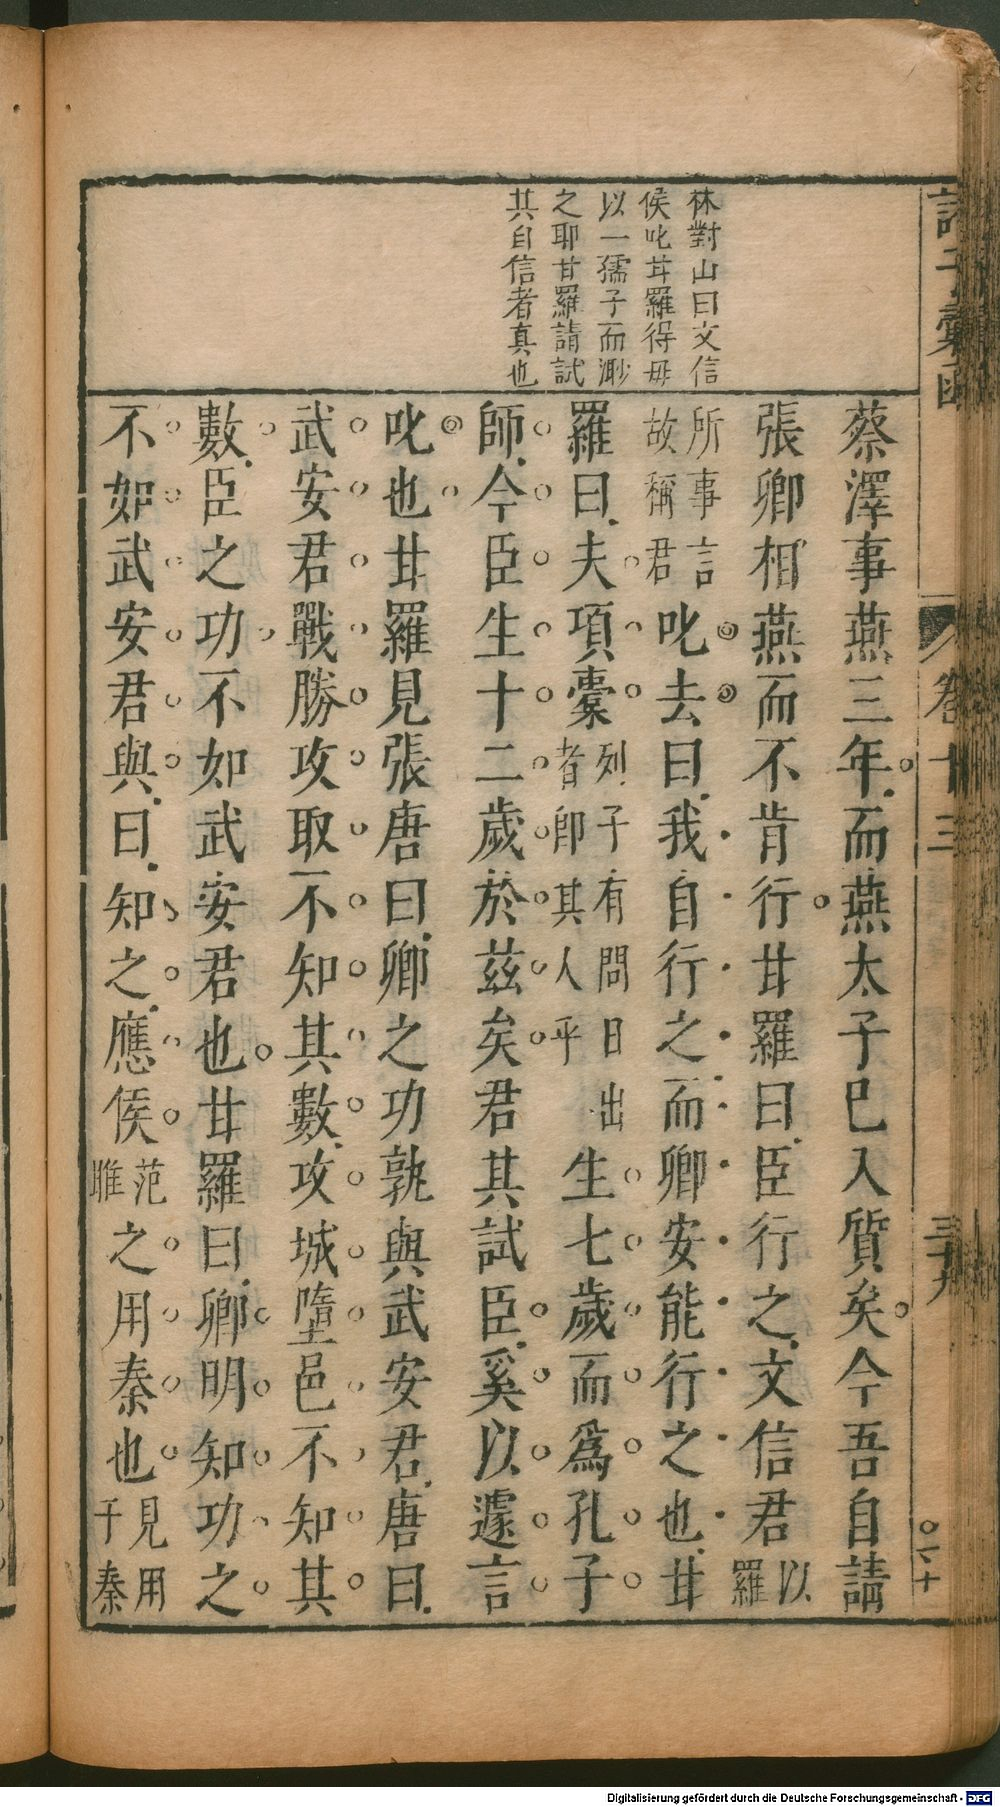 林對山曰文信
侯叱甘羅得毋
以一孺子而渺
之耶甘羅請試
其自信者真也
蔡澤事燕三年而燕太子已入質矣今吾自請
張卿相燕而不肯行甘羅曰臣行之文信君以羅
所事言故稱君叱去曰我自行之而卿安能行之也甘
羅曰夫項橐列子有問日出者卽其人乎生七歲而爲孔子
師今臣生十二歲於茲矣君其試臣奚以遽言
叱也甘羅見張唐曰卿之功孰與武安君唐曰
武安君戰勝攻取不知其數攻城墮邑不知其
數臣之功不如武安君也甘羅曰卿明知功之
不如武安君與曰知之應侯范雎之用秦也見用于秦
卷十三
三十九
Digitalisierung gefördert durch die Deutsche Forschungsgemeinschaft - DFG